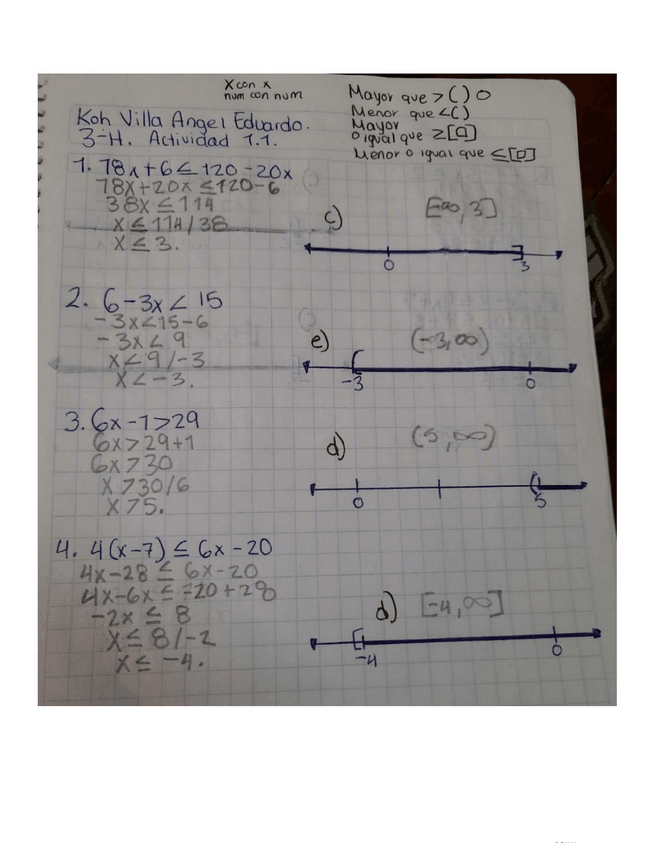 X con x
num con num
Mayor que > ( ) O
Menor que < ( )
Mayor
o igual que ≥ [O]
Menor o igual que ≤ [O]
Koh Villa Angel Eduardo.
3-H. Actividad 1.1.
1. 78x + 6 ≤ 120 - 20x
18x + 20x ≤ 120 - 6
38x ≤ 114
x ≤ 114/38
x ≤ 3.
c) [-∞, 3]
0 3
2. 6 - 3x < 15
- 3x < 15 - 6
- 3x < 9
x < 9/-3
x < -3.
e) (-3, ∞)
-3 0
3. 6x - 1 > 29
6x > 29 + 1
6x > 30
x > 30/6
x > 5.
d) (5, ∞)
0 5
4. 4(x - 7) ≤ 6x - 20
4x - 28 ≤ 6x - 20
4x - 6x ≤ -20 + 28
-2x ≤ 8
x ≤ 8/-2
x ≤ -4.
d) [-4, ∞]
-4 0